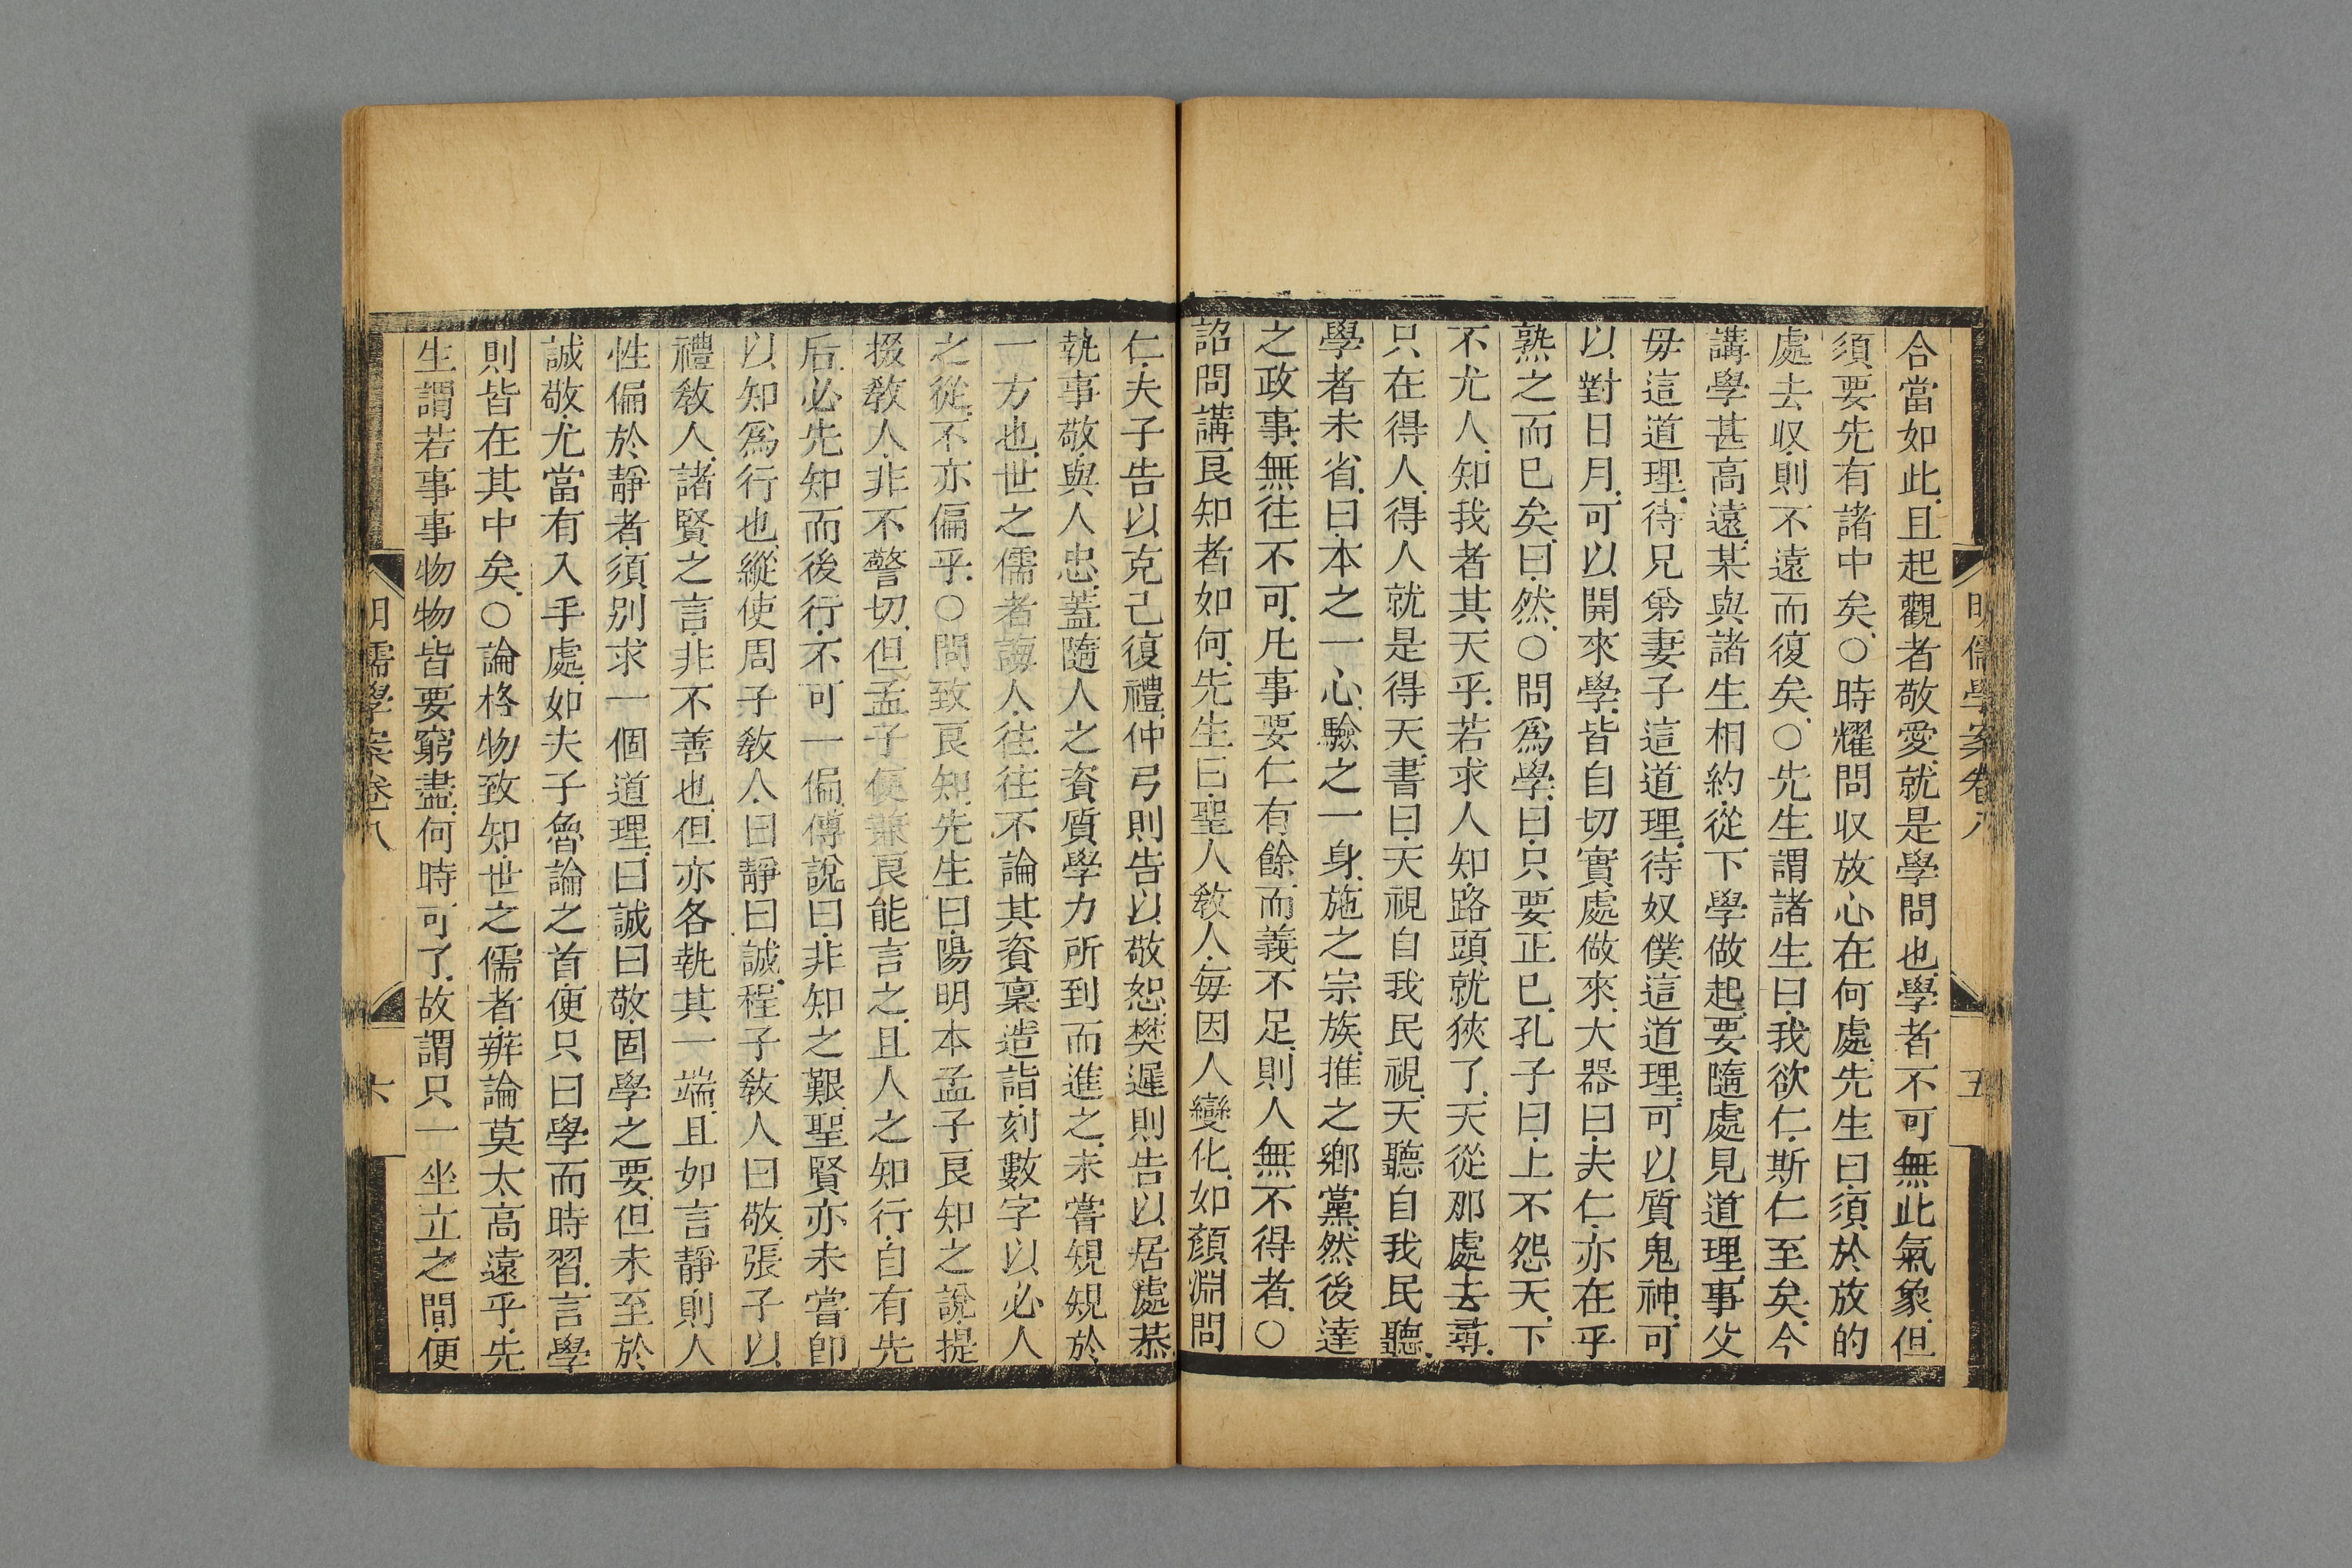 明儒學案卷八
五
合當如此.且起觀者敬愛.就是學問也.學者不可無此氣象.但
須要先有諸中矣.○時耀問收放心在何處.先生曰.須於放的
處去収.則不遠而復矣.○先生謂諸生曰.我欲仁.斯仁至矣.今
講學甚高遠.某與諸生相約.從下學做起.要隨處見道理.事父
毋這道理.待兄弟妻子這道理.待奴僕這道理.可以質鬼神.可
以對日月.可以開來學.皆自切實處做來.大器曰.夫仁.亦在乎
熟之而已矣.曰.然.○問爲學.曰.只要正己.孔子曰.上不怨天.下
不尤人.知我者其天乎.若求人知.路頭就狹了.天從那處去尋.
只在得人.得人就是得天.書曰.天視自我民視.天聽自我民聽.
學者未省.曰.本之一心.驗之一身.施之宗族.推之鄉黨.然後達
之政事.無往不可.凡事要仁有餘而義不足.則人無不得者.○
詔問講良知者如何.先生曰.聖人敎人.每因人變化.如顏淵問
仁.夫子告以克己復禮.仲弓則告以敬恕.樊遲則告以居處恭.
執事敬.與人忠.蓋隨人之資質學力所到而進之.未嘗規規於
一方也.世之儒者誨人.往往不論其資稟造詣.刻數字以必人
之從.不亦偏乎.○問致良知.先生曰.陽明本孟子良知之說.提
掇敎人.非不警切.但孟子便兼良能言之.且人之知行.自有先
后.必先知而後行.不可一偏.傅說曰.非知之艱.聖賢亦未嘗卽
以知爲行也.縱使周子敎人曰靜曰誠.程子敎人曰敬.張子以
禮敎人.諸賢之言.非不善也.但亦各執其一端.且如言靜則人
性偏於靜者.須別求一個道理.曰誠曰敬.固學之要.但未至於
誠敬.尤當有入手處.如夫子魯論之首.便只曰學而時習.言學
則皆在其中矣.○論格物致知.世之儒者.辨論莫太高遠乎.先
生謂若事事物物.皆要窮盡.何時可了.故謂只一坐立之間.便
明儒學案卷八
六